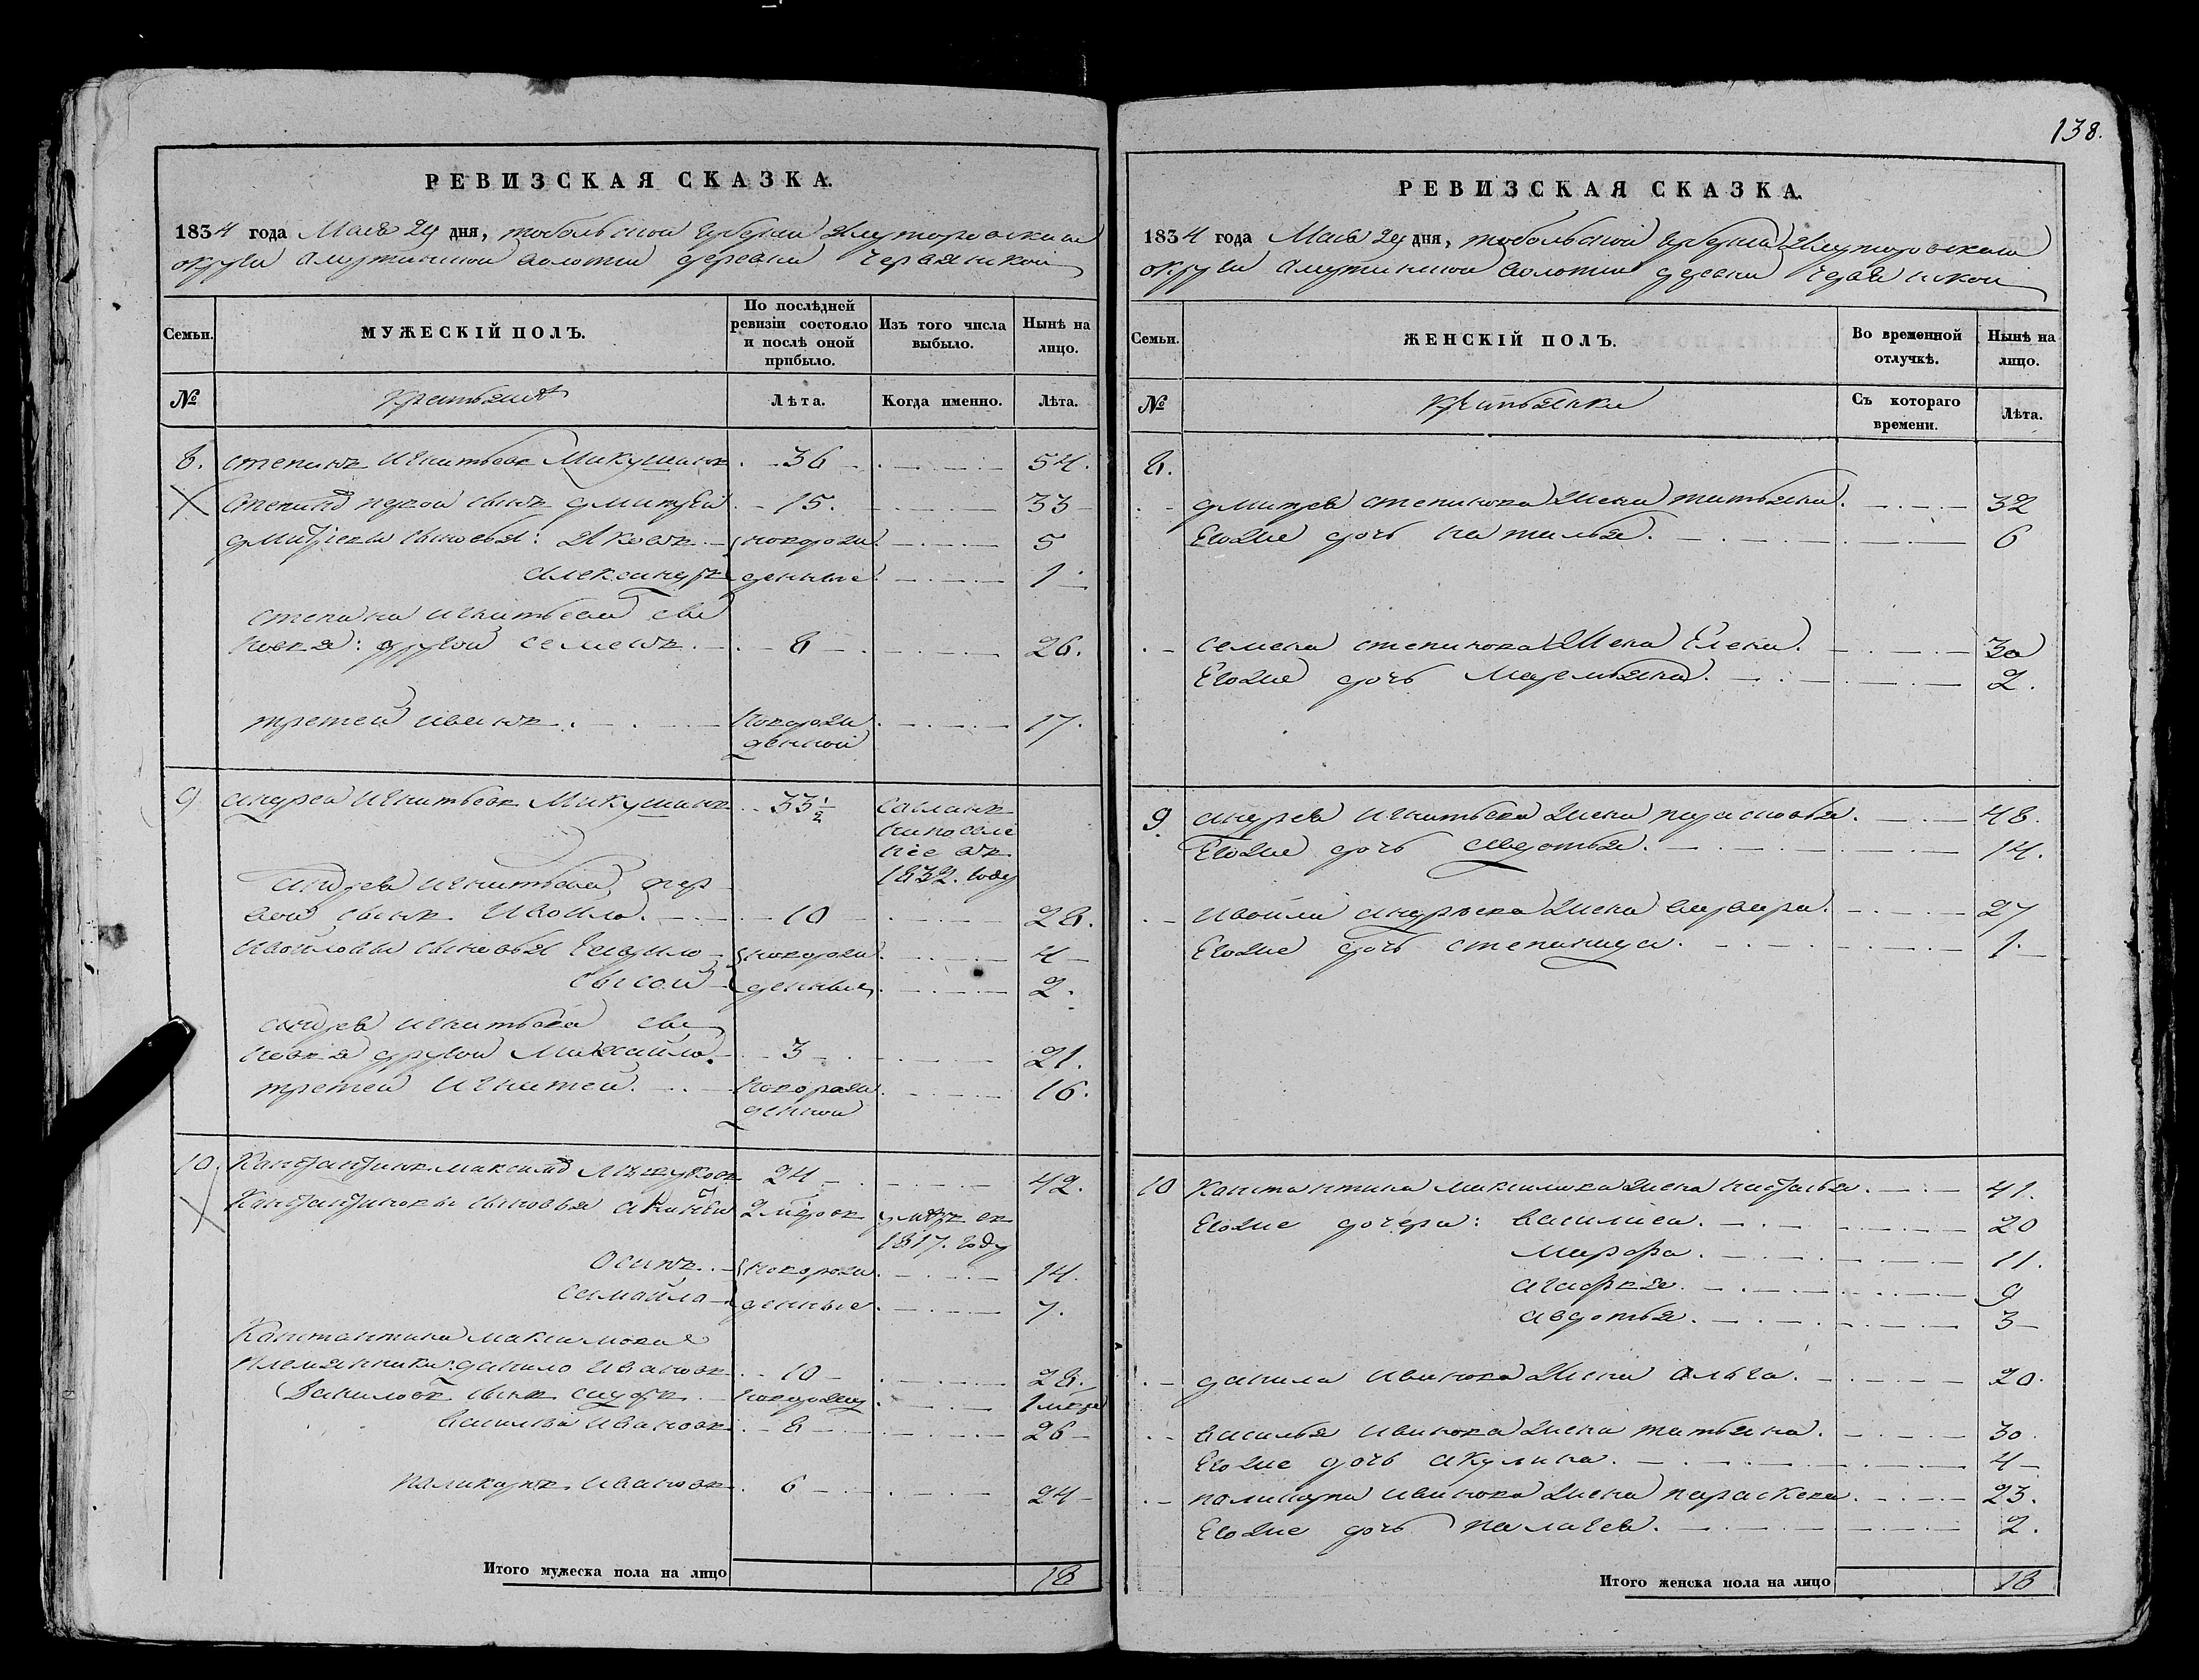 РЕВИЗСКАЯ СКАЗКА.
1834 года Маія 24 дня, тобольской губерніи Ялуторовскаго
округа Амутинской волости деревни Червянской
Семьи.
МУЖЕСКІЙ ПОЛЪ.
По послѣдней
ревизіи состояло
и послѣ оной
прибыло.
Изъ того числа
выбыло.
Нынѣ на
лицо.
№
крестьяне
Лѣта.
Когда именно.
Лѣта.
8. степанъ игнатьевъ Микушинъ 36 54.
степана первой сынъ дмитрей 15. 33
дмитріевы сыновья: Яковъ новорож 5
александръ денные 1
степана игнатьева сы
новья: другой семенъ 8 26.
третей иванъ новорож 17.
денной
9 андрей игнатьевъ Микушинъ 33 1/2 сосланъ
на поселе
ніе въ
1832. году
андрея игнатьева пер
вой сынъ Ивойло 10 28.
ивойловы сыновья новорож 4
сысой денные 2.
андрея игнатьева сы
новья другой Михайло 3 21.
третей игнатей новорож 16.
денной
10. Констянтинъ максимов 24 42.
Констянтиновы сыновья 2 умре въ
1817. году
Осипъ новорож 14.
самойло денные 7.
Констянтина максимова
племянники: данило ивановъ 10 28.
Даниловъ сынъ новорож 1
василей ивановъ 8 26
поликарпъ ивановъ 6 24
Итого мужеска пола на лицо 18
138.
РЕВИЗСКАЯ СКАЗКА.
1834 года Маія 24 дня, тобольской губерніи Ялуторовскаго
округа Амутинской волости деревни Червянской
Семьи.
ЖЕНСКІЙ ПОЛЪ.
Во временной
отлучкѣ.
Нынѣ на
лицо.
№
крестьянки
Съ котораго
времени.
Лѣта.
8.
дмитрея степанова жена татьяна. 32
Евоже дочь наталья. 6
семена степанова жена Елена. 30
Евоже дочь Маремьяна. 2.
9 андрея игнатьева жена парасковья. 48.
Евоже дочь авдотья. 14.
ивойла андреева жена варвара. 27
Евоже дочь степанида. 1.
10 константина максимова жена настасья. 41.
Евоже дочери: василиса. 20
марфа. 11.
агафья. 9
авдотья. 3
данила иванова жена ольга. 20.
василья иванова жена татьяна. 30.
Евоже дочь акулина. 4
поликарпа иванова жена параскева. 23.
Евоже дочь палагея. 2.
Итого женска пола на лицо 18